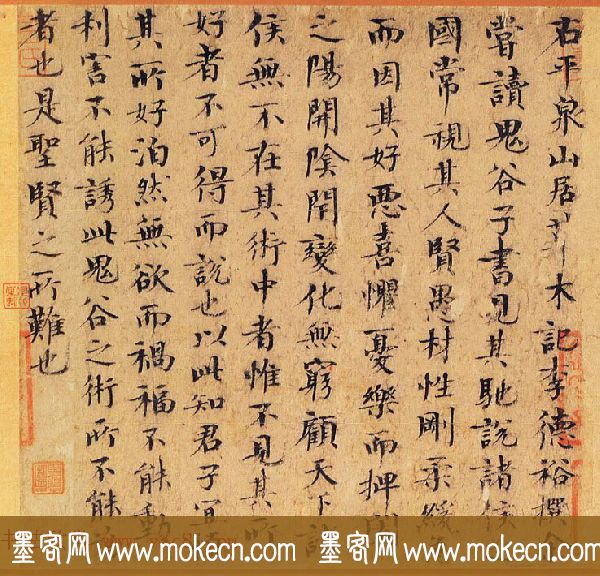 右平泉山居草木記李德裕撰余
嘗讀鬼谷子書見其馳說諸侯
國常視其人賢愚材性剛柔緩
而因其好惡喜懼憂樂而捭闔
之陽開陰閉變化無窮顧天下諸
侯無不在其術中者惟不見其所
好者不可得而說也以此知君子宜
其所好泊然無欲而禍福不能動
利害不能誘此鬼谷之術所不能
者也是聖賢之所難也
墨客网 www.mokecn.com 墨客网 www.mokecn.com